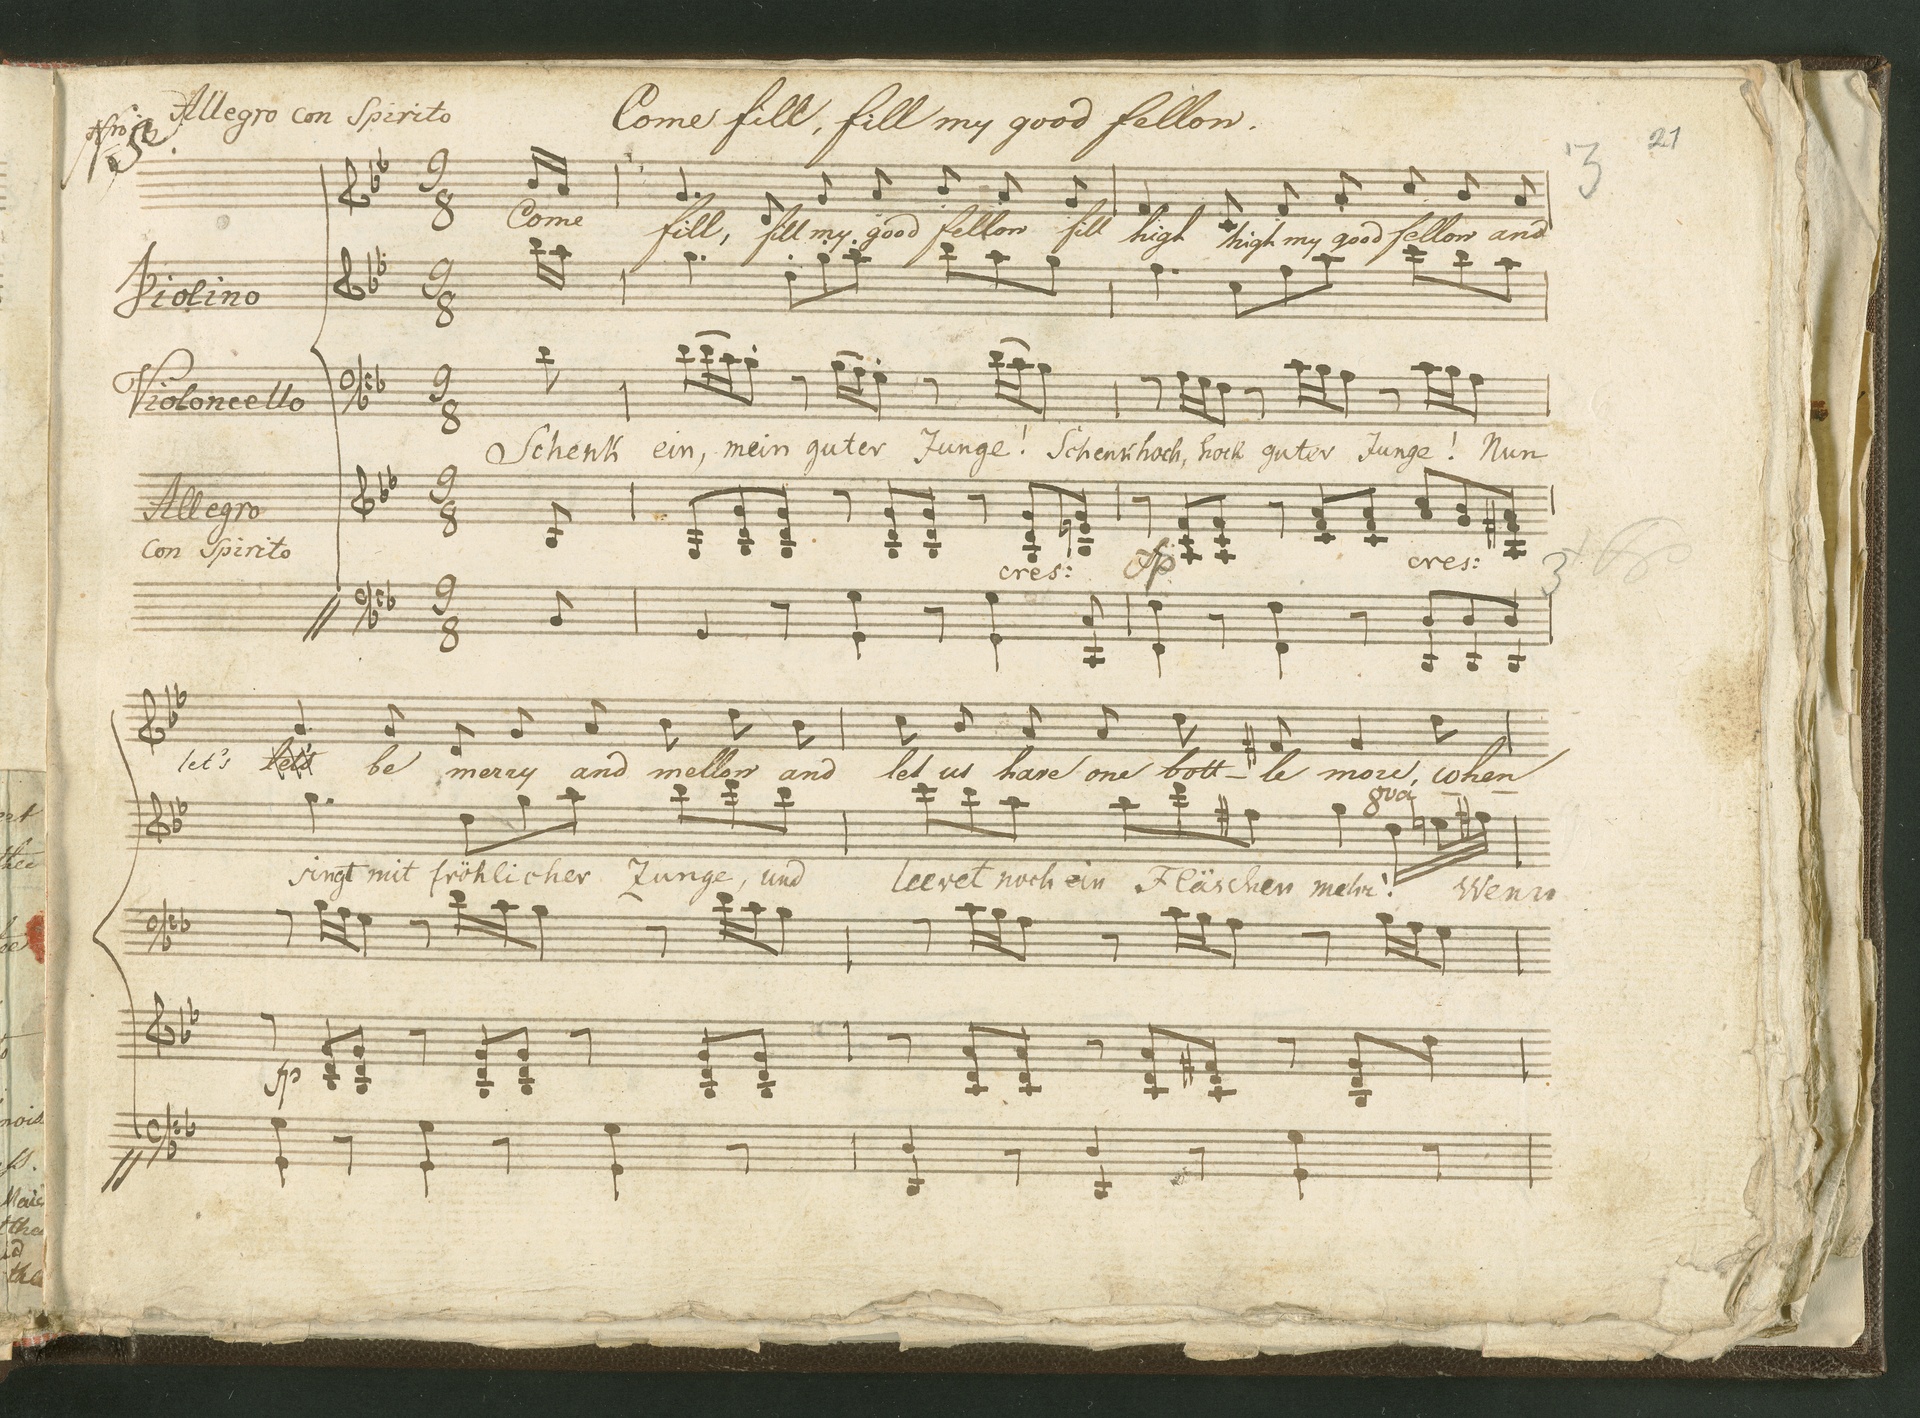 Allegro con Spirito
Come fill, fill my good fellow.
21
3
9
8
Come fill, fill my good fellow fill high high my good fellow and
Violino
9
8
Violoncello
9
8
Schenk ein, mein guter Junge! Schenk hoch, hoch guter Junge! Nun
Allegro
con Spirito
9
8
cres: fp cres:
3
9
8
let's be merry and mellow and let us have one bott-le more, when
8va
singt mit fröhlicher Zunge, und leeret noch ein Fläschen mehr! Wenn
fp